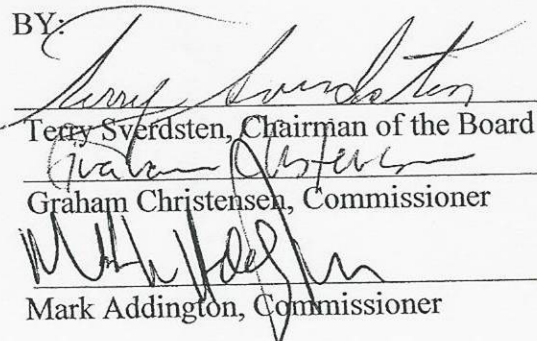 BY:
Terry Sverdsten
Terry Sverdsten, Chairman of the Board
Graham Christensen
Graham Christensen, Commissioner
Mark Addington, Commissioner